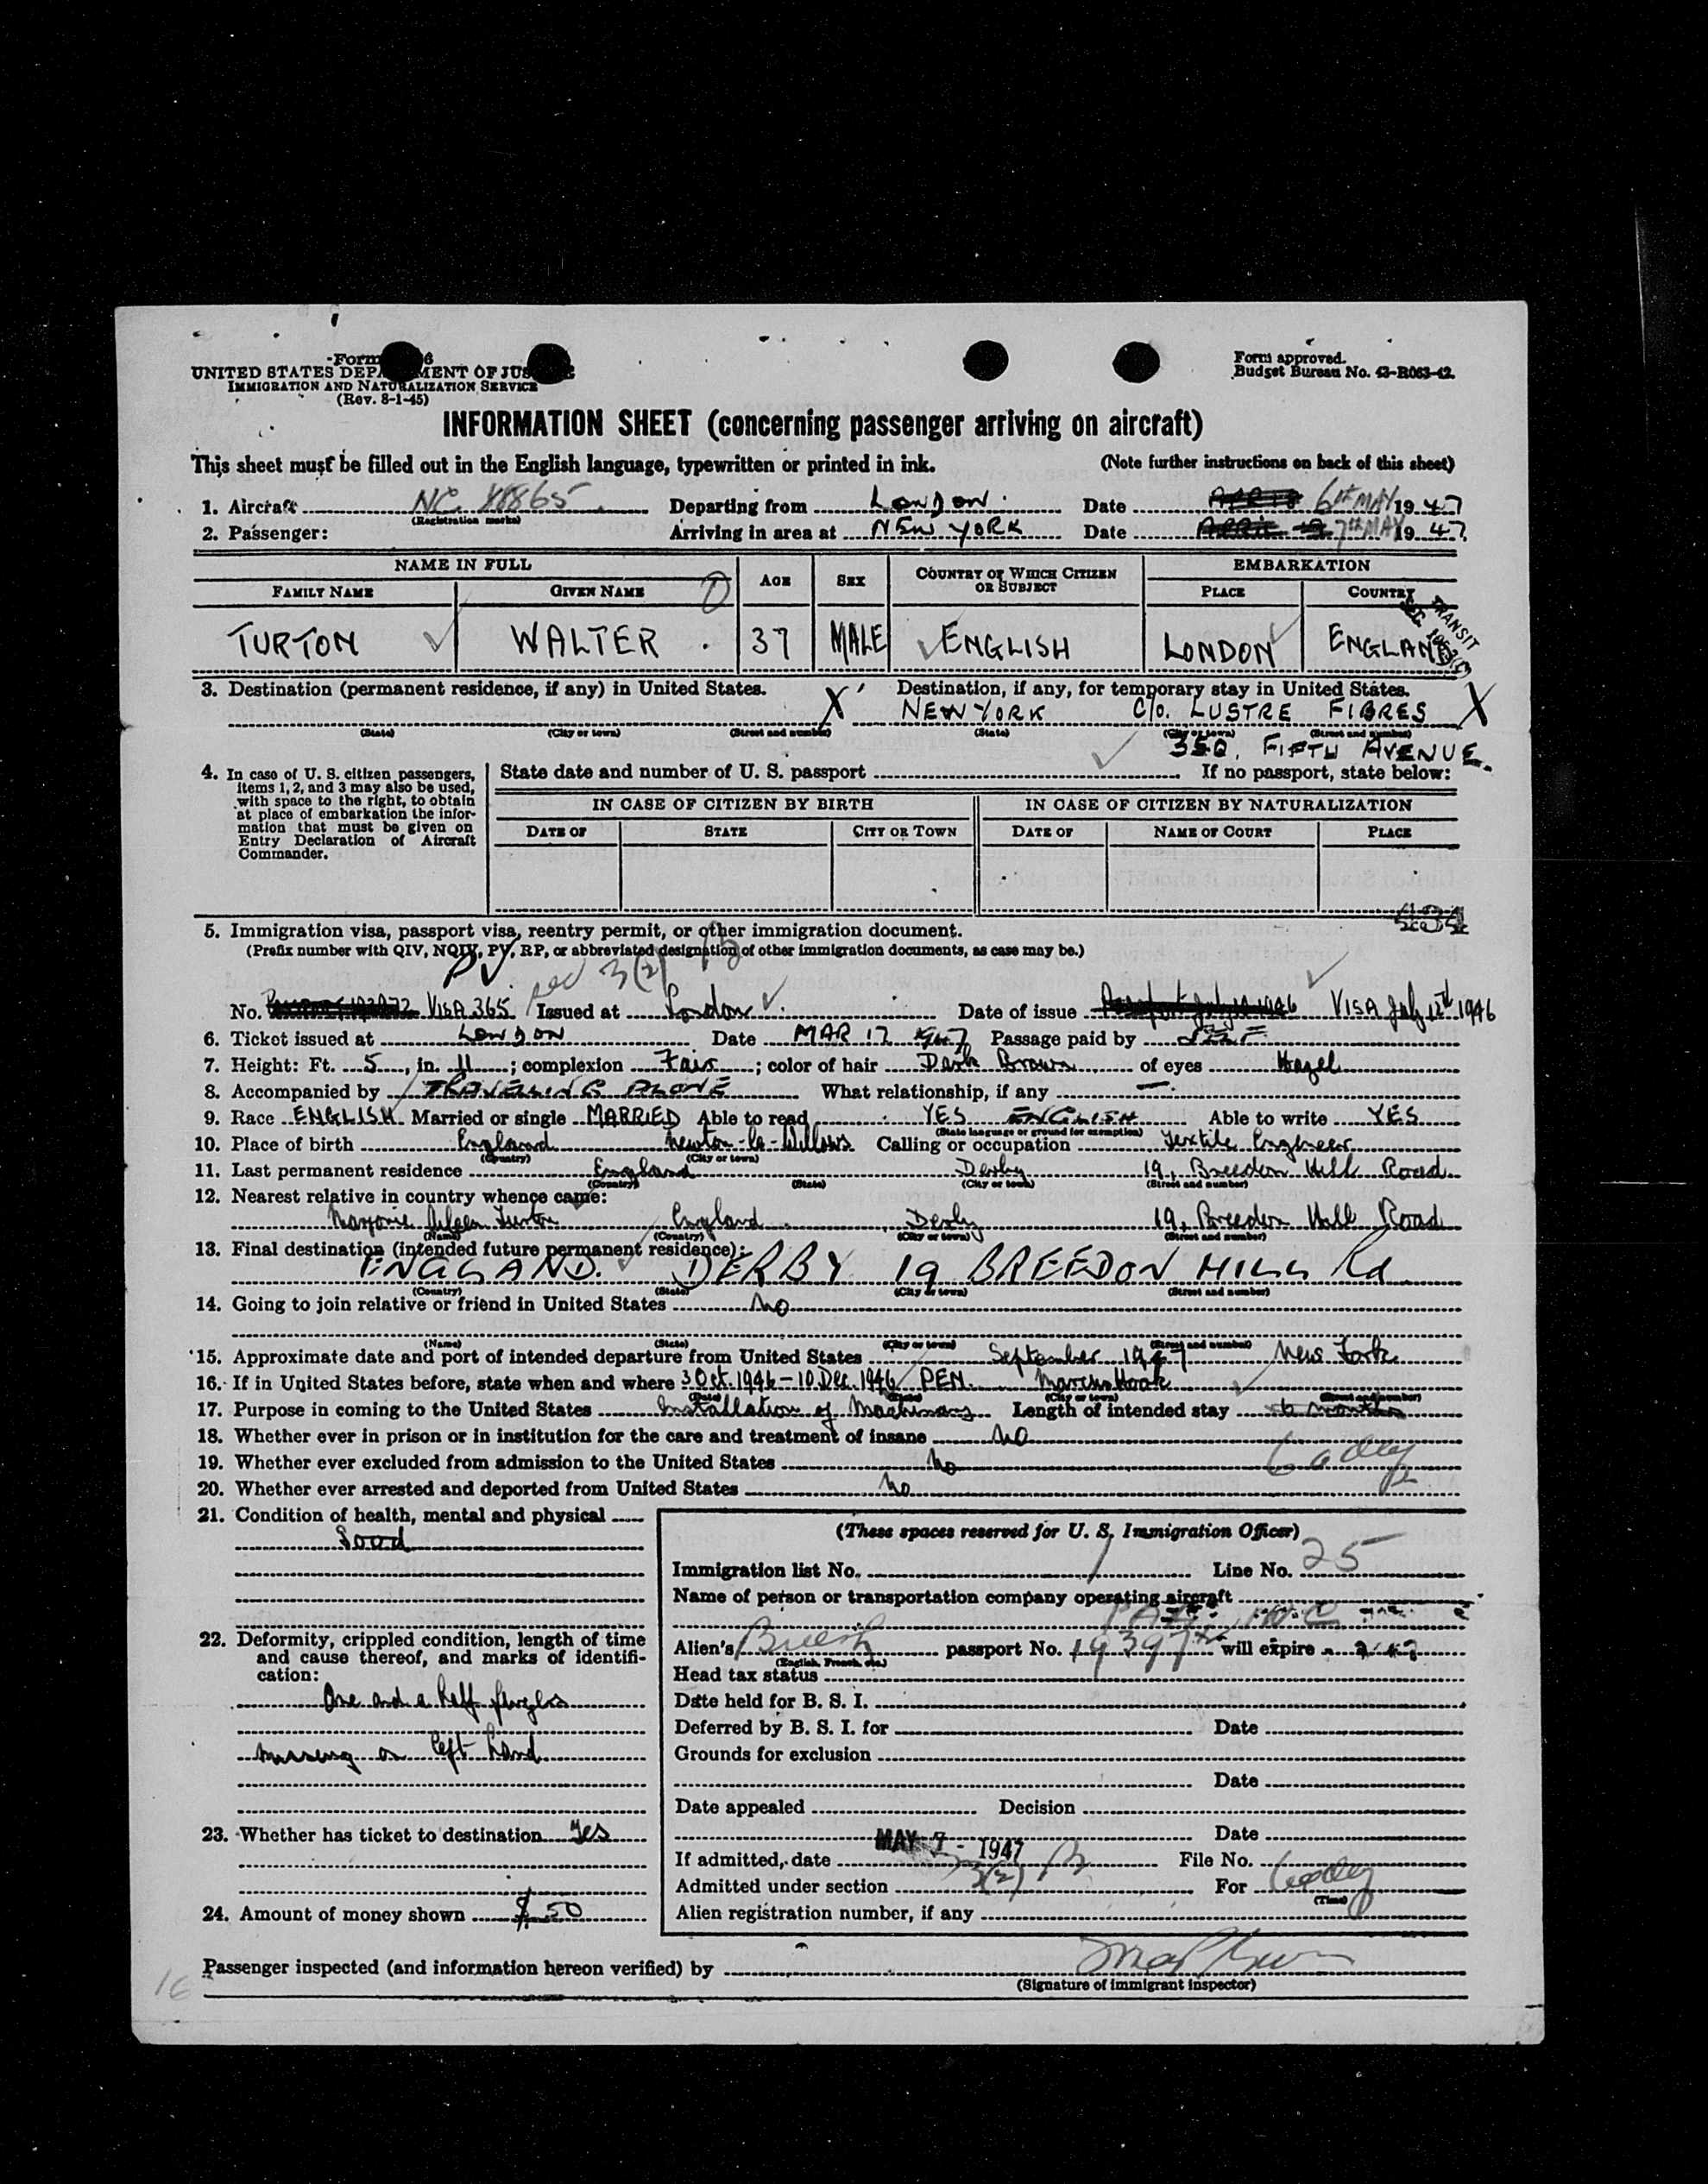 Form
UNITED STATES DEPARTMENT OF JUSTICE
IMMIGRATION AND NATURALIZATION SERVICE
(Rev. 8-1-45)
Form approved.
Budget Bureau No. 43-R063-42.
INFORMATION SHEET (concerning passenger arriving on aircraft)
This sheet must be filled out in the English language, typewritten or printed in ink. (Note further instructions on back of this sheet)
1. Aircraft NC 88865 Departing from LONDON. Date 6th MAY 1947
(Registration marks)
2. Passenger: Arriving in area at NEW YORK Date 7th MAY 1947
NAME IN FULL AGE SEX COUNTRY OF WHICH CITIZEN OR SUBJECT EMBARKATION
FAMILY NAME GIVEN NAME PLACE COUNTRY
TURTON WALTER 37 MALE ENGLISH LONDON ENGLAND
TRANSIT
3. Destination (permanent residence, if any) in United States. Destination, if any, for temporary stay in United States.
X NEW YORK C/o. LUSTRE FIBRES X
(State) (City or town) (Street and number) (State) (City or town) (Street and number)
350, FIFTH AVENUE.
4. In case of U. S. citizen passengers, items 1, 2, and 3 may also be used, with space to the right, to obtain at place of embarkation the information that must be given on Entry Declaration of Aircraft Commander.
State date and number of U. S. passport If no passport, state below:
IN CASE OF CITIZEN BY BIRTH IN CASE OF CITIZEN BY NATURALIZATION
DATE OF STATE CITY OR TOWN DATE OF NAME OF COURT PLACE
5. Immigration visa, passport visa, reentry permit, or other immigration document.
(Prefix number with QIV, NQIV, PV, RP, or abbreviated designation of other immigration documents, as case may be.)
PV 3(2)
No. VISA 365 Issued at London Date of issue VISA July 12th 1946
6. Ticket issued at LONDON Date MAR 17 1947 Passage paid by SELF
7. Height: Ft. 5, in. 11; complexion Fair; color of hair Dark Brown of eyes Hazel
8. Accompanied by TRAVELLING ALONE What relationship, if any —
9. Race ENGLISH Married or single MARRIED Able to read YES ENGLISH Able to write YES
(State language or ground for exemption)
10. Place of birth England Newton-le-Willows Calling or occupation Textile Engineer
(Country) (City or town)
11. Last permanent residence England Derby 19, Breedon Hill Road
(Country) (State) (City or town) (Street and number)
12. Nearest relative in country whence came:
Marjorie Aileen Turton England Derby 19, Breedon Hill Road
(Name) (Country) (City or town) (Street and number)
13. Final destination (intended future permanent residence):
ENGLAND. DERBY 19 BREEDON HILL Rd
(Country) (State) (City or town) (Street and number)
14. Going to join relative or friend in United States No
(Name) (State) (City or town) (Street and number)
15. Approximate date and port of intended departure from United States September 1947 New York
16. If in United States before, state when and where 3 Oct. 1946 – 10 Dec. 1946 PEN. Marcus Hook
(Date) (State) (City or town) (Street and number)
17. Purpose in coming to the United States Installation of Machinery Length of intended stay 6 months
18. Whether ever in prison or in institution for the care and treatment of insane No
19. Whether ever excluded from admission to the United States No
20. Whether ever arrested and deported from United States No
21. Condition of health, mental and physical
Good
22. Deformity, crippled condition, length of time and cause thereof, and marks of identification:
One and a half fingers
missing on left hand
23. Whether has ticket to destination Yes
24. Amount of money shown $ 50
(These spaces reserved for U. S. Immigration Officer)
Immigration list No. Line No. 25
Name of person or transportation company operating aircraft
PAA INC
Alien's British passport No. will expire
(English, French, etc.)
Head tax status
Date held for B. S. I.
Deferred by B. S. I. for Date
Grounds for exclusion
Date
Date appealed Decision
Date
If admitted, date MAY 7 - 1947 File No.
Admitted under section 3(2) For
(Time)
Alien registration number, if any
Passenger inspected (and information hereon verified) by
(Signature of immigrant inspector)
16